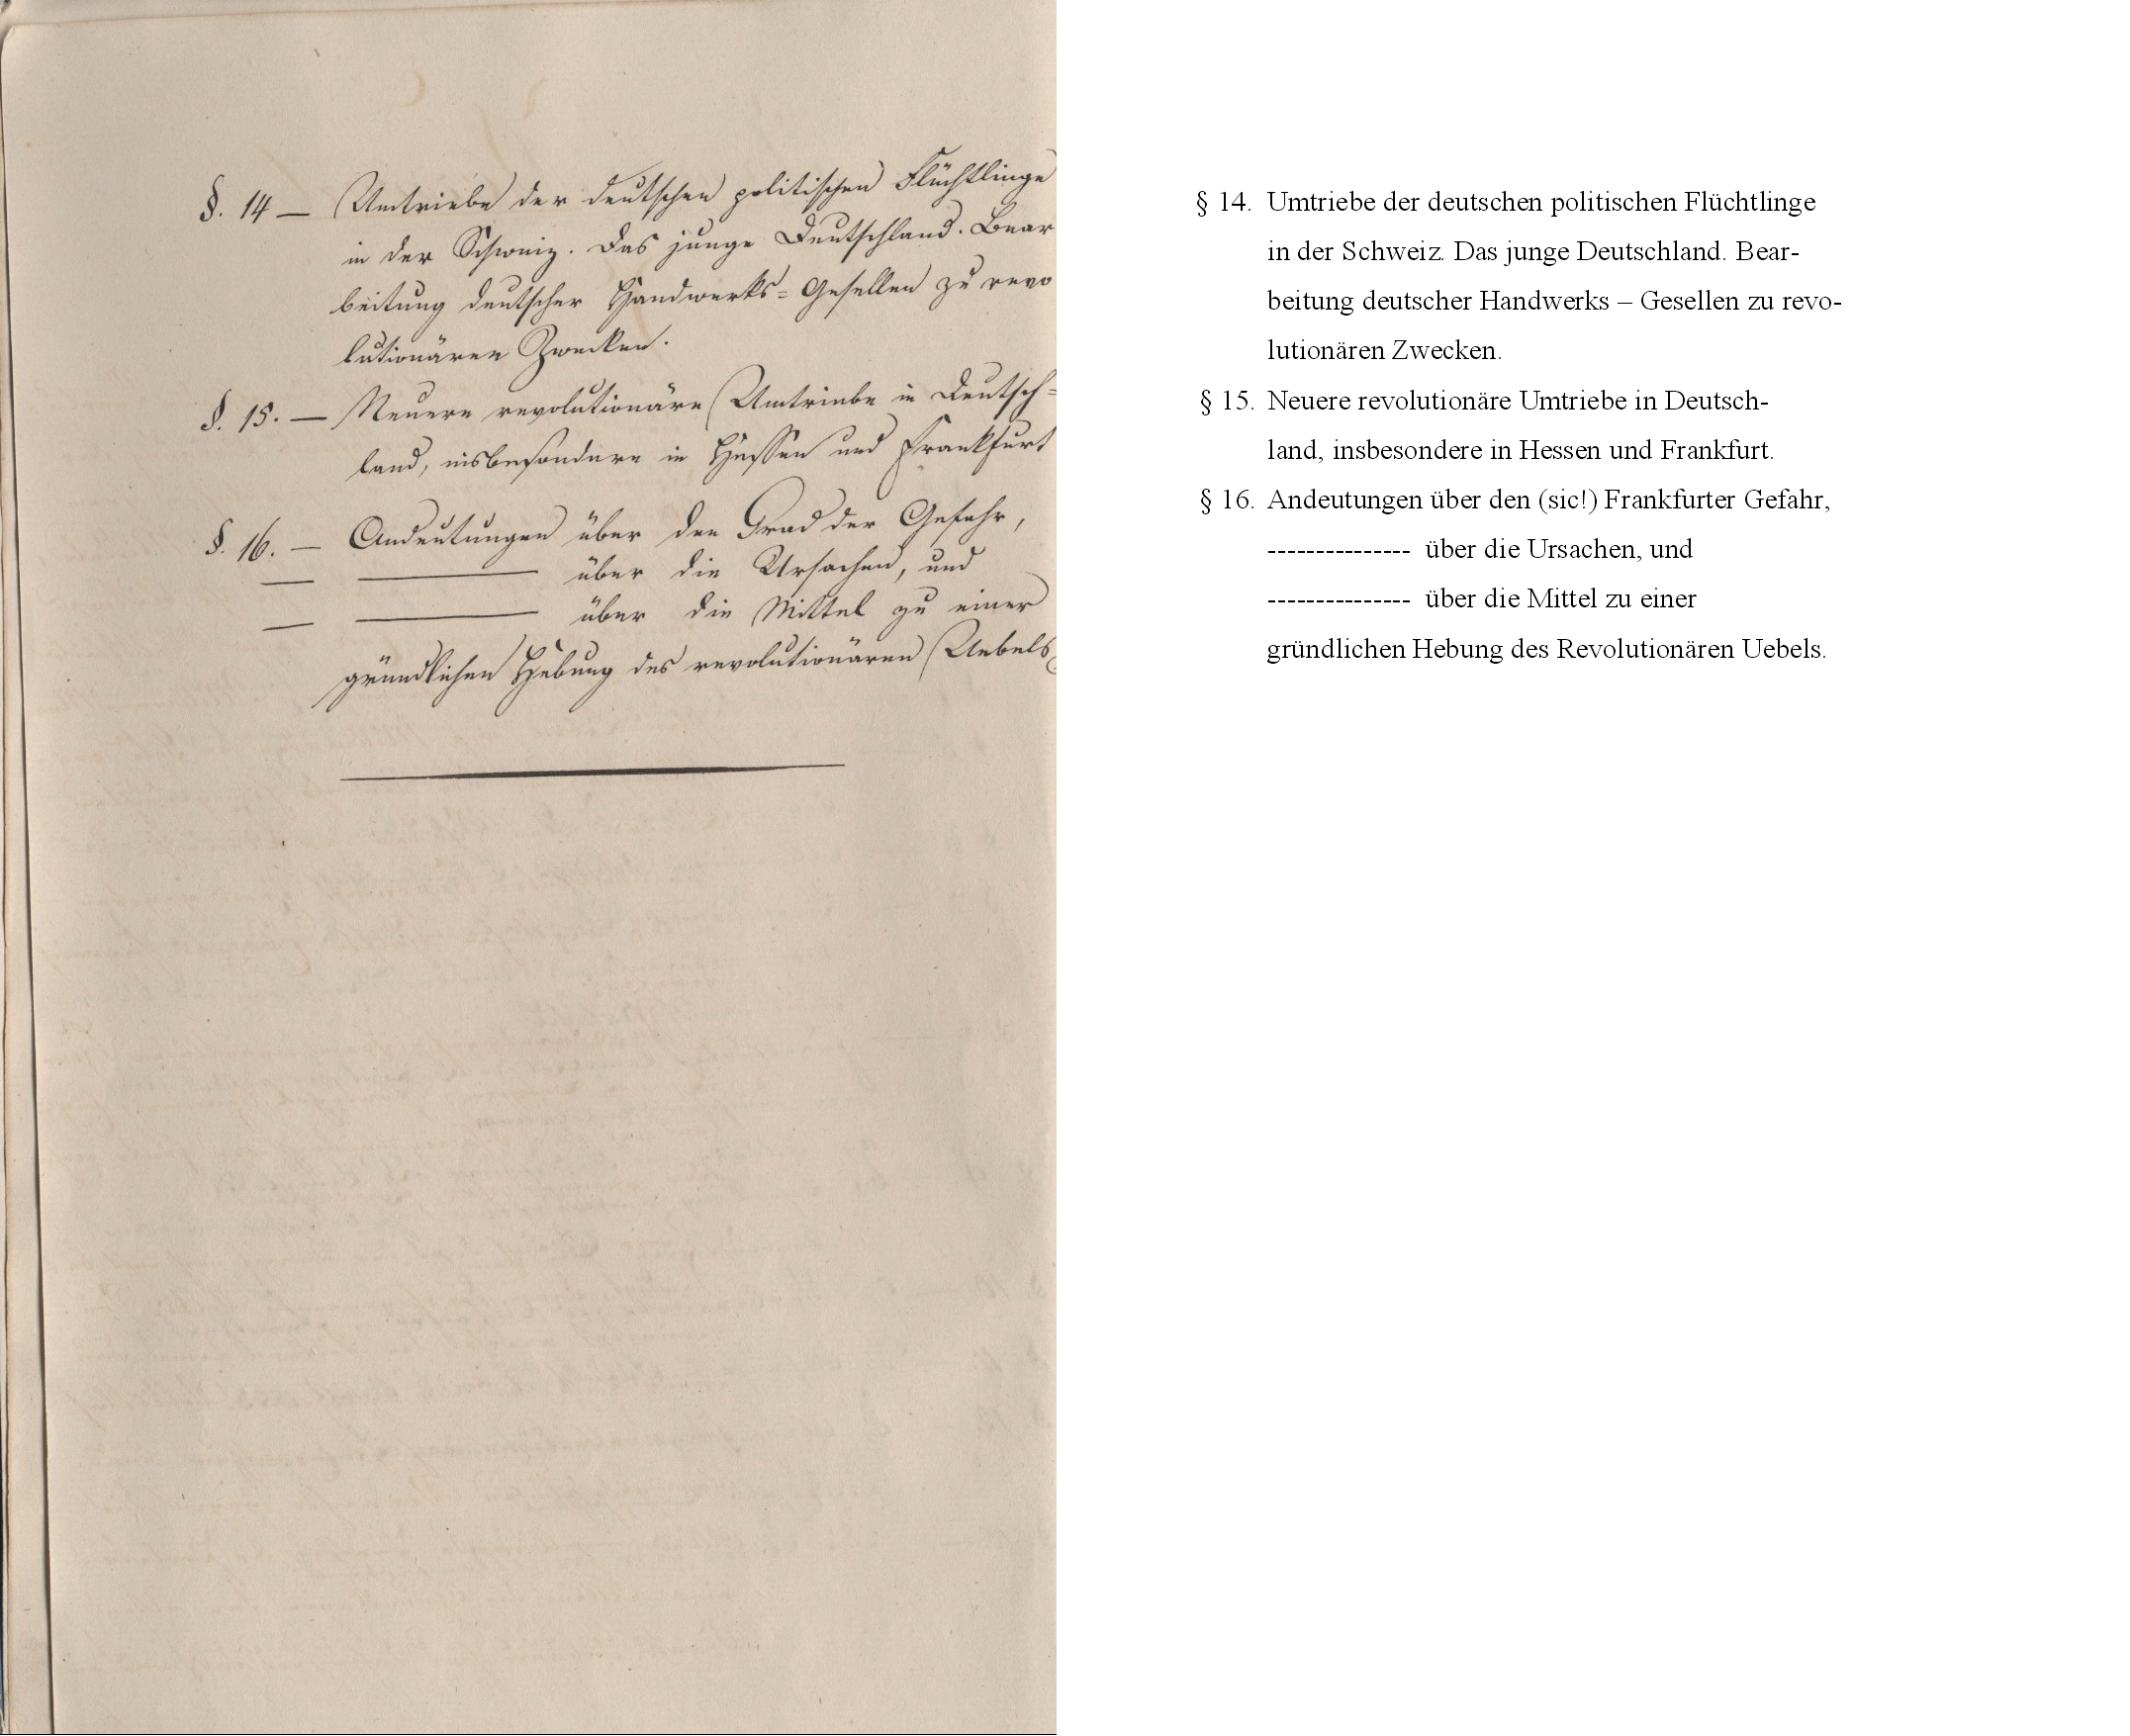 §. 14 — Umtriebe der deutschen politischen Flüchtlinge
in der Schweiz. Das junge Deutschland. Bear
beitung deutscher Handwerks= Gesellen zu revo
lutionären Zwecken.
§. 15. — Neuere revolutionäre Umtriebe in Deutsch=
land, insbesondere in Hessen und Frankfurt
§. 16. — Andeutungen über den Grad der Gefahr,
— — über die Ursachen, und
— — über die Mittel zu einer
gründlichen Hebung des revolutionären Uebels
§ 14. Umtriebe der deutschen politischen Flüchtlinge
in der Schweiz. Das junge Deutschland. Bear-
beitung deutscher Handwerks – Gesellen zu revo-
lutionären Zwecken.
§ 15. Neuere revolutionäre Umtriebe in Deutsch-
land, insbesondere in Hessen und Frankfurt.
§ 16. Andeutungen über den (sic!) Frankfurter Gefahr,
--------------- über die Ursachen, und
--------------- über die Mittel zu einer
gründlichen Hebung des Revolutionären Uebels.